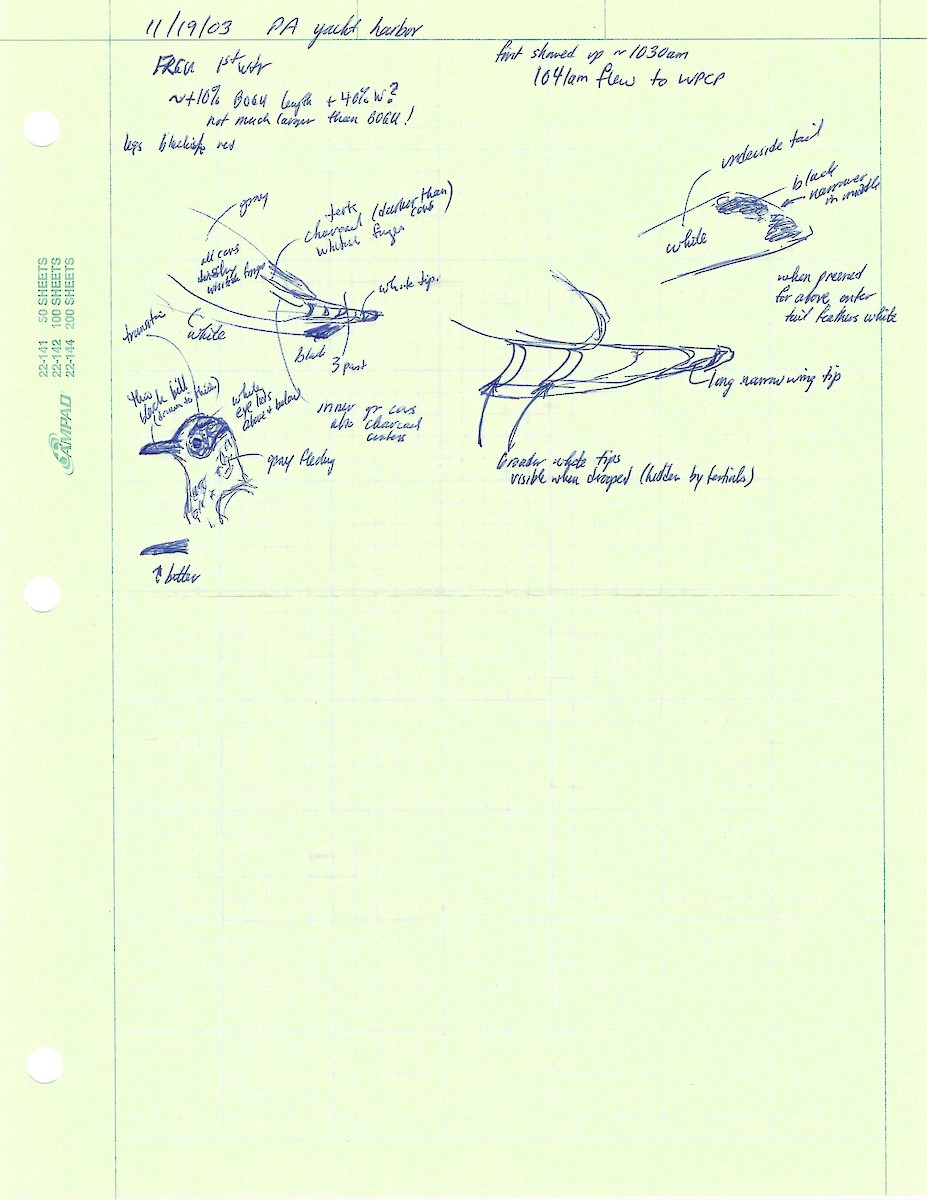 11/19/03 PA yacht harbor
FRGU 1st wtr
first showed up ~1030am
1041am flew to WPCP
~+10% BOGU length + 40% W?
not much larger than BOGU!
legs blackish red
underside tail
black
narrower
in middle
white
when preened
for above, outer
tail feathers white
gray
terts
charcoal (darker than covs)
whitish fringes
all covs
whitish fringe
white tips
white
black
3 past
thin
black bill
(drawn too thick)
white
eye lids
above + below
inner gr covs
also charcoal
centers
gray flecking
long narrow wing tip
broader white tips
visible when drooped (hidden by tertials)
↑ better
22-141 50 SHEETS
22-142 100 SHEETS
22-144 200 SHEETS
AMPAD